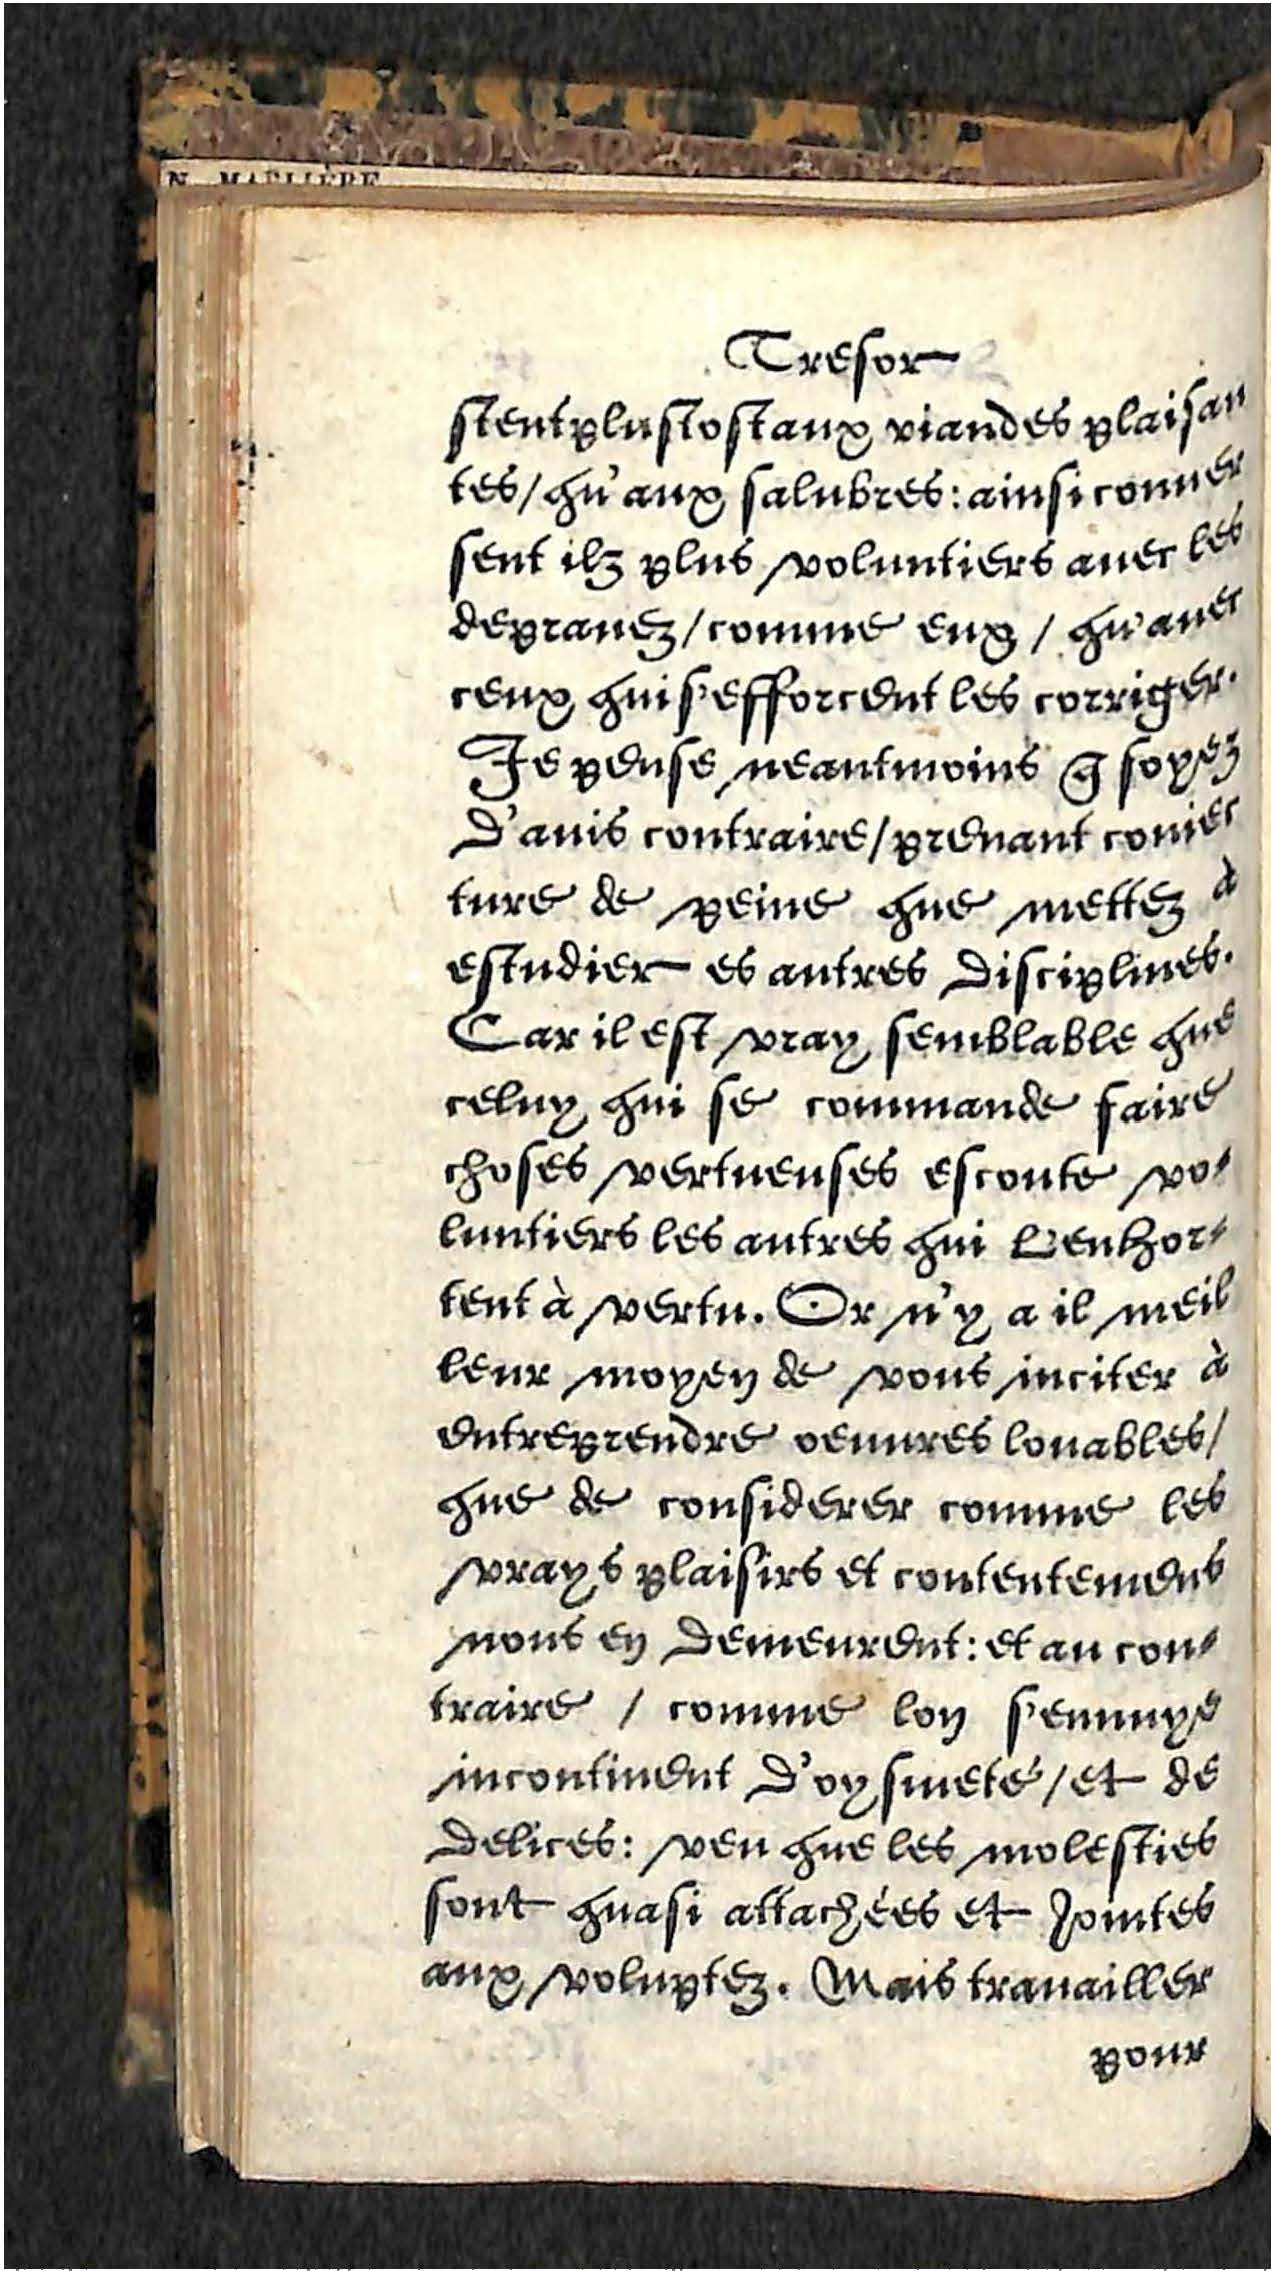 N. MAELIÈRE
Tresor
stent plustost aux viandes plaisan
tes/ qu'aux salubres: ainsi conuer
sent ilz plus voluntiers auec les
deprauez/ comme eux / qu'auec
ceux qui s'efforcent les corriger.
Je pense neantmoins q̃ soyez
d'auis contraire/ prenant coniec
ture de peine que mettez à
estudier es autres disciplines.
Car il est vray semblable que
celuy qui se commande faire
choses vertueuses escoute vo-
luntiers les autres qui l'enhor-
tent à vertu. Or n'y a il meil
leur moyen de vous inciter à
entreprendre oeuures louables/
que de considerer comme les
vrays plaisirs et contentemens
nous en demeurent: et au con-
traire / comme lon s'ennuye
incontinent d'oysiueté/ et de
delices: veu que les molesties
sont quasi attachées et Jointes
aux voluptez. Mais trauailler
pour